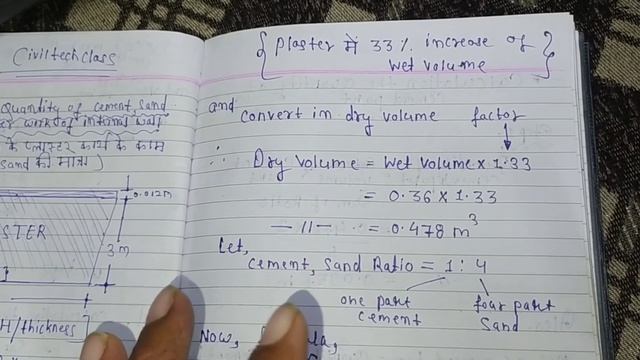 Civiltechclass
Quantity of cement, sand
work of internal wall
के प्लास्टर कार्य के काम
sand की मात्रा)
0.012m
STER
3m
H/thickness]
{Plaster में 33% increase of
wet volume}
and
convert in dry volume factor
∴ Dry volume = wet volume x 1.33
= 0.36 x 1.33
— 11 — = 0.478 m³
Let,
cement, sand Ratio = 1 : 4
one part four part
cement sand
Now,